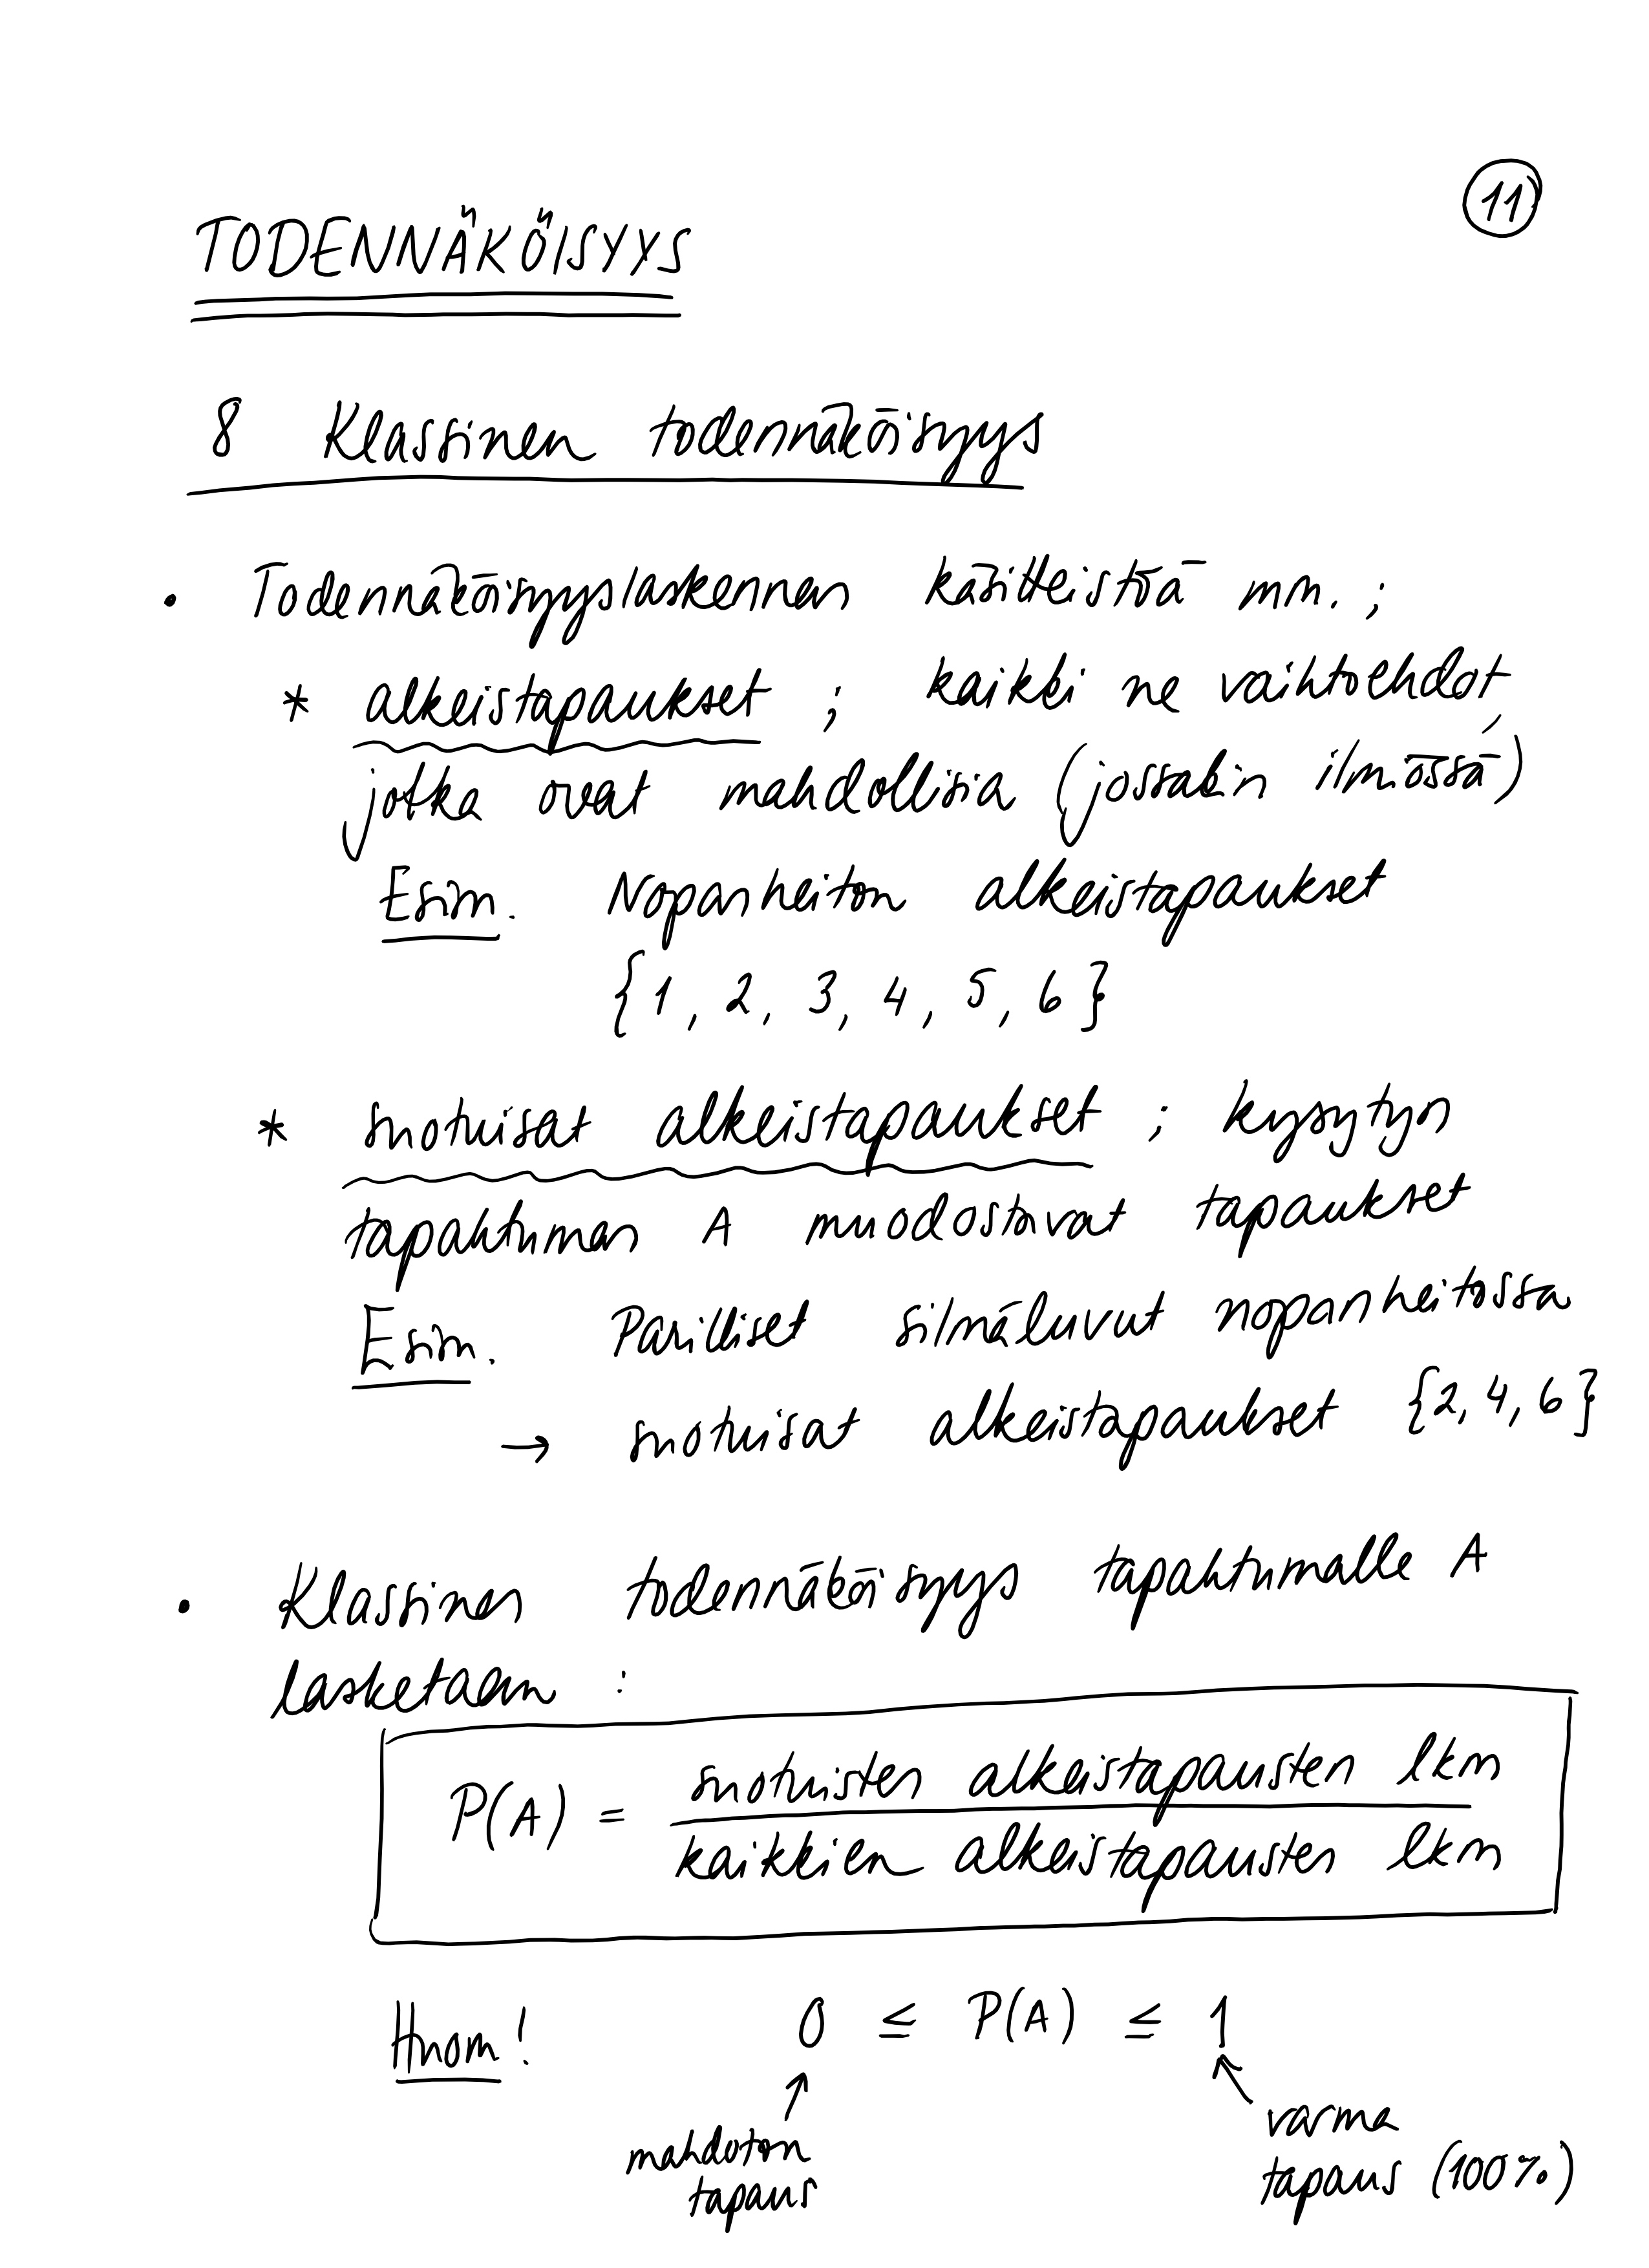 11
TODENNÄKÖISYYS
8 Klassinen todennäköisyys
• Todennäköisyyslaskennan käsitteistöä mm. ;
* alkeistapaukset ; kaikki ne vaihtoehdot,
jotka ovat mahdollisia (jossakin ilmiössä)
Esim. Nopanheiton alkeistapaukset
{1, 2, 3, 4, 5, 6}
* suotuisat alkeistapaukset ; kysytyn
tapahtuman A muodostavat tapaukset
Esim. Parilliset silmäluvut nopanheitossa
→ suotuisat alkeistapaukset {2, 4, 6}
• Klassinen todennäköisyys tapahtumalle A
lasketaan :
P(A) = suotuisten alkeistapausten lkm
kaikkien alkeistapausten lkm
Huom! 0 ≤ P(A) ≤ 1
mahdoton
tapaus
varma
tapaus (100%)